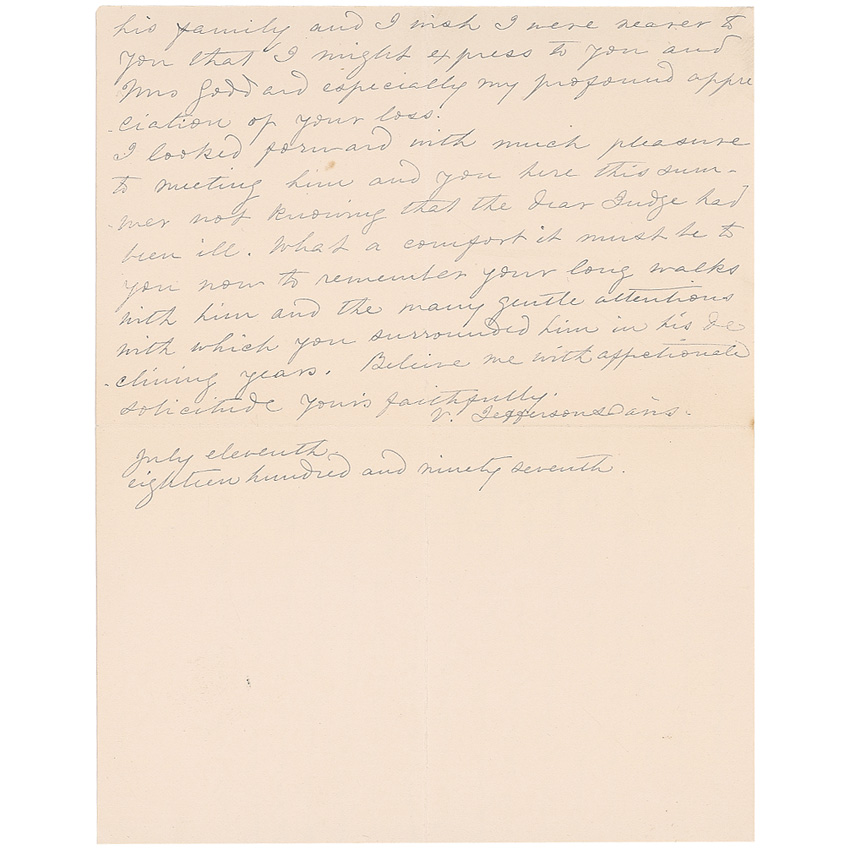 his family and I wish I were nearer to
you that I might express to you and
Mrs Goddard especially my profound appre
-ciation of your loss.
I looked forward with much pleasure
to meeting him and you here this sum-
-mer not knowing that the dear Judge had
been ill. What a comfort it must be to
you now to remember your long walks
with him and the many gentle attentions
with which you surrounded him in his de
-clining years. Believe me with affectionate
solicitude yours faithfully.
V. Jefferson Davis.
July eleventh
eighteen hundred and ninety seventh.